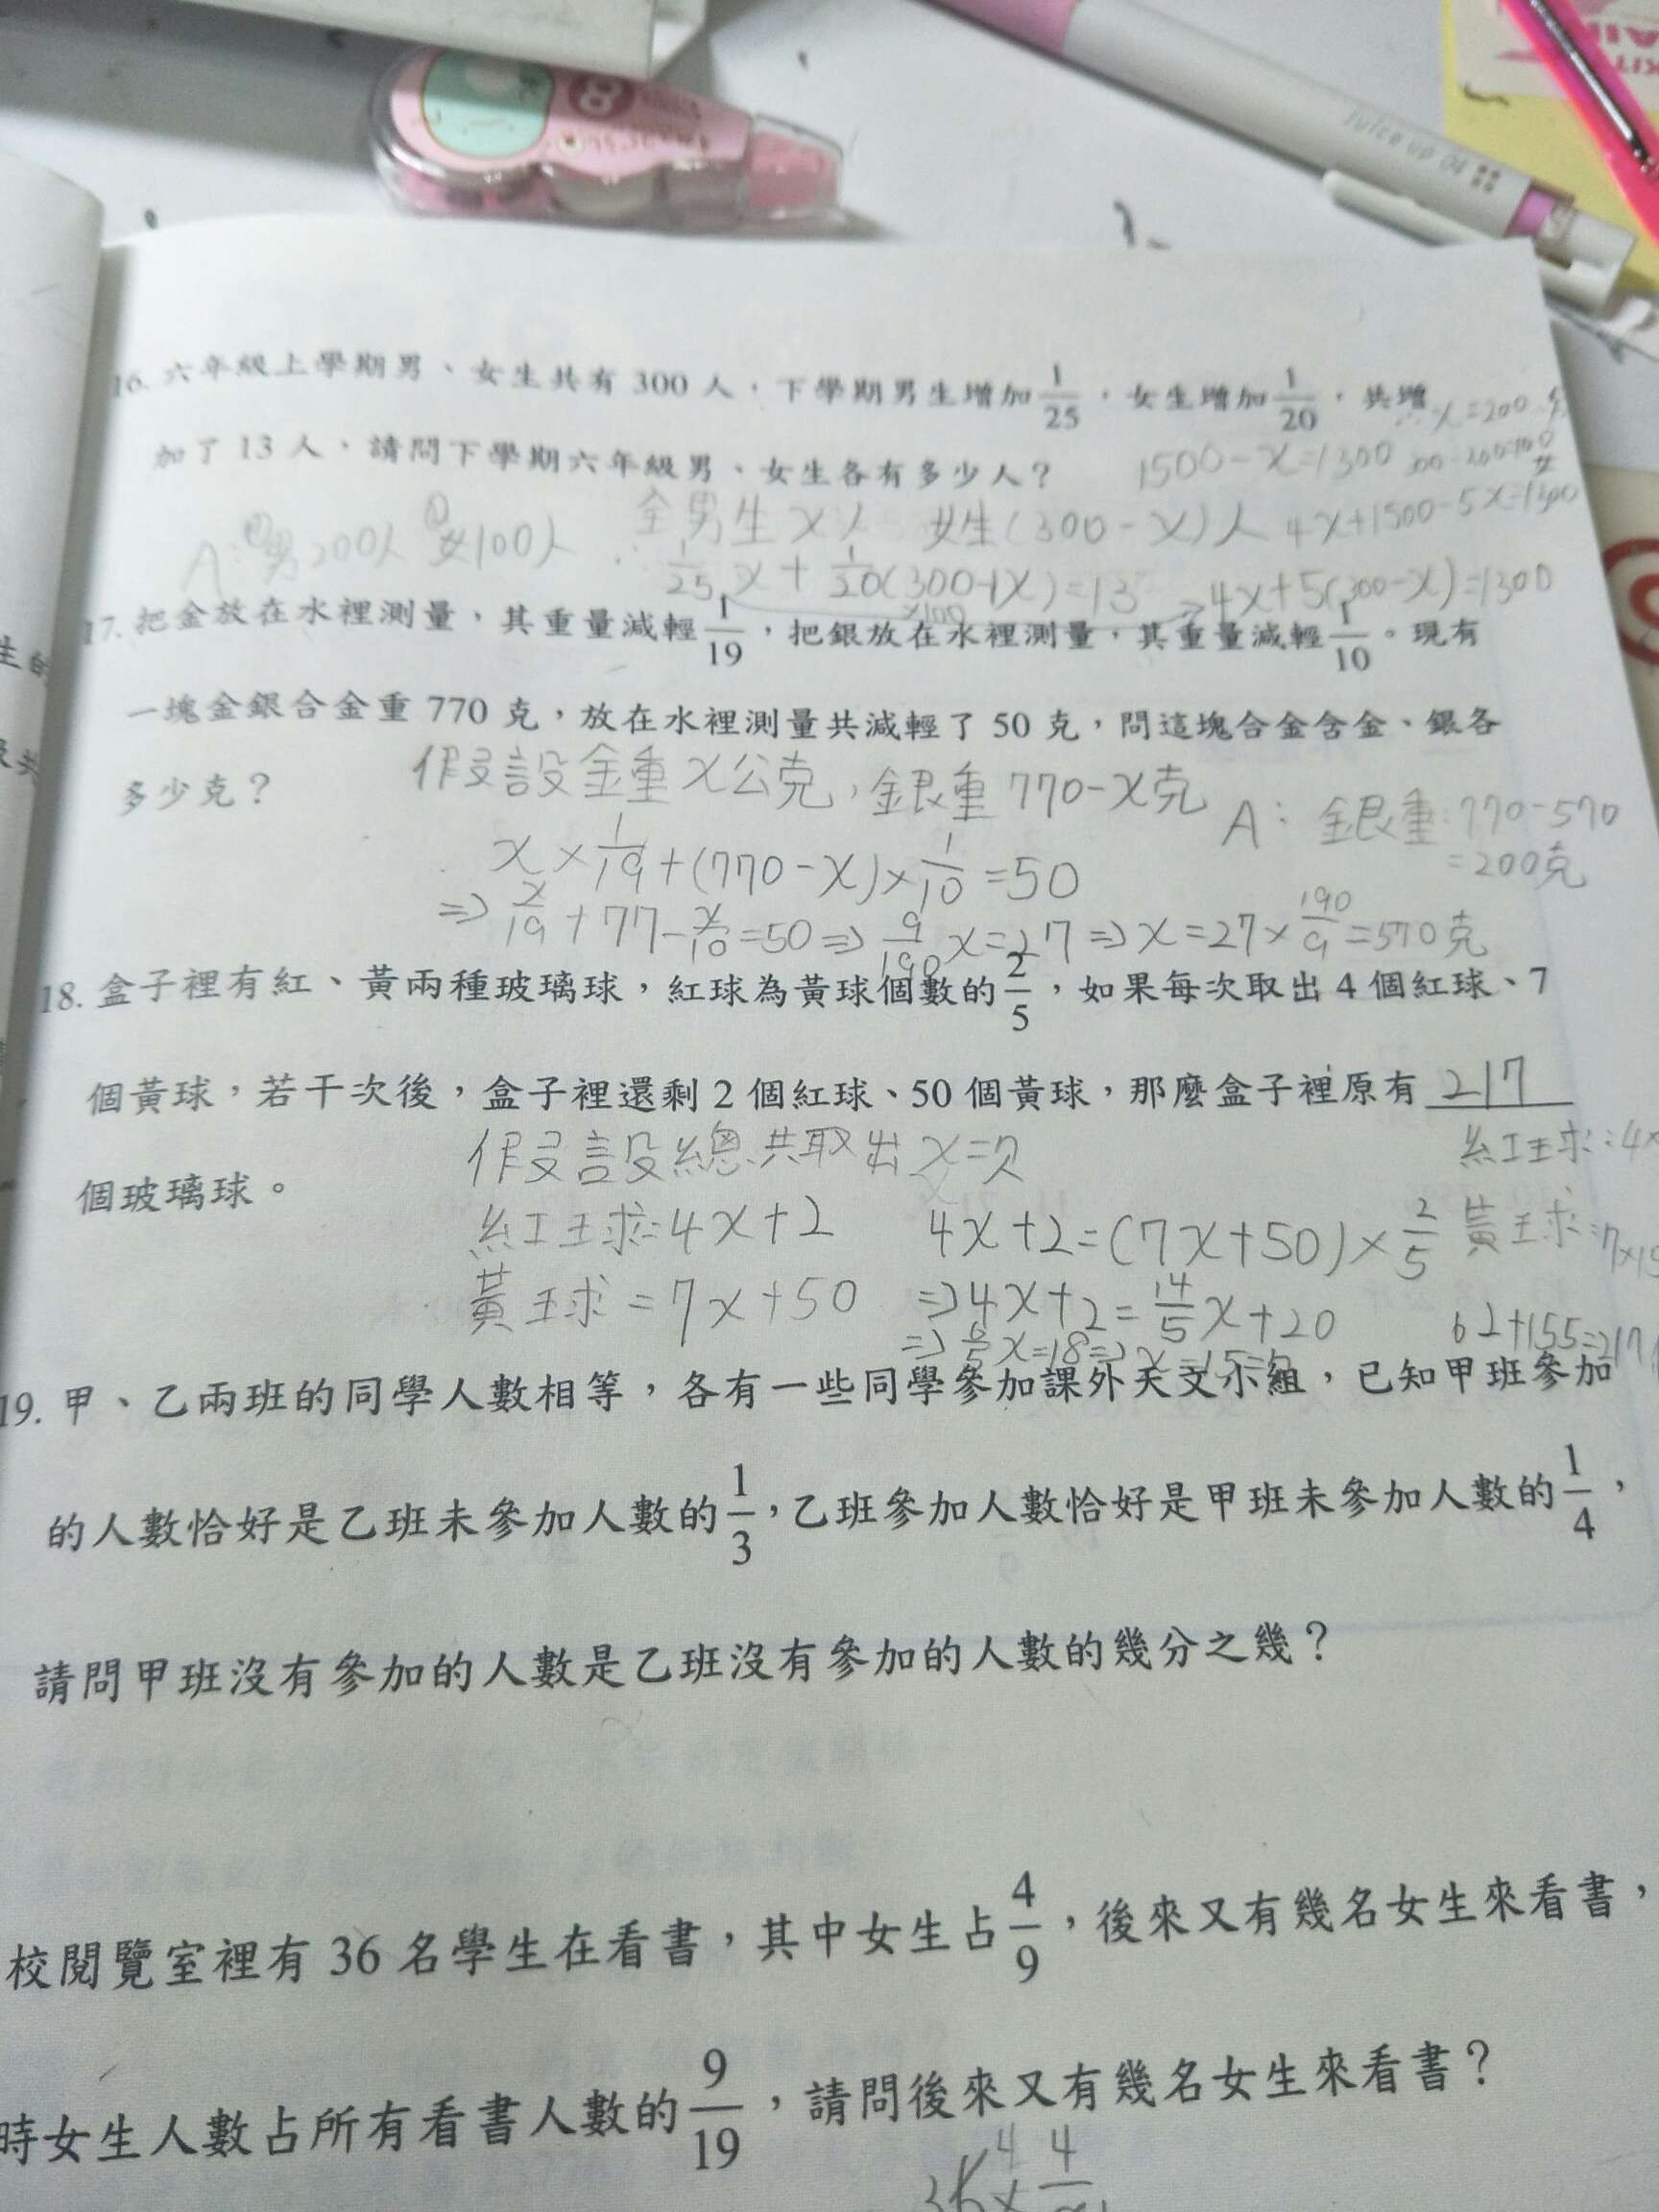 juice up 04
16. 六年級上學期男、女生共有 300 人,下學期男生增加1/25,女生增加1/20,共增
∴x=200
加了 13 人,請問下學期六年級男、女生各有多少人?
1500-x=1300
全男生x人 女生(300-x)人 4x+1500-5x=1300
A:①男200人 ②女100人
∴1/25x+1/20(300-x)=13 → 4x+5(300-x)=1300
×100
17. 把金放在水裡測量,其重量減輕1/19,把銀放在水裡測量,其重量減輕1/10。現有
一塊金銀合金重 770 克,放在水裡測量共減輕了 50 克,問這塊合金含金、銀各
多少克?
假設金重x公克,銀重770-x克
A:銀重:770-570
=200克
x×1/19+(770-x)×1/10=50
⇒x/19+77-x/10=50⇒9/190x=27⇒x=27×190/9=570克
18. 盒子裡有紅、黃兩種玻璃球,紅球為黃球個數的2/5,如果每次取出 4 個紅球、7
個黃球,若干次後,盒子裡還剩 2 個紅球、50 個黃球,那麼盒子裡原有217
個玻璃球。
假設總共取出x=次
紅球:4x
紅球=4x+2 4x+2=(7x+50)×2/5
黃球=7×15
黃球=7x+50 ⇒4x+2=14/5x+20
62+155=217
⇒6/5x=18⇒x=15
19. 甲、乙兩班的同學人數相等,各有一些同學參加課外天文小組,已知甲班參加
的人數恰好是乙班未參加人數的1/3,乙班參加人數恰好是甲班未參加人數的1/4,
請問甲班沒有參加的人數是乙班沒有參加的人數的幾分之幾?
校閱覽室裡有 36 名學生在看書,其中女生占4/9,後來又有幾名女生來看書,
時女生人數占所有看書人數的9/19,請問後來又有幾名女生來看書?
36×4
4